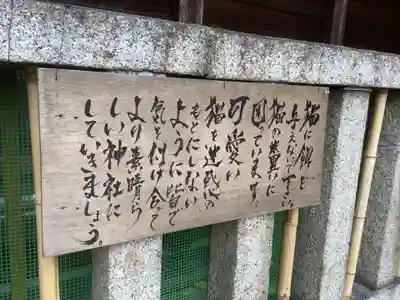 猫に餌を
与えないで下さい。
猫の糞重に
困っています。
可愛い
猫を迷惑の
もとにしない
ように皆で
気を付け合って
より素晴ら
しい神社に
していきましょう。